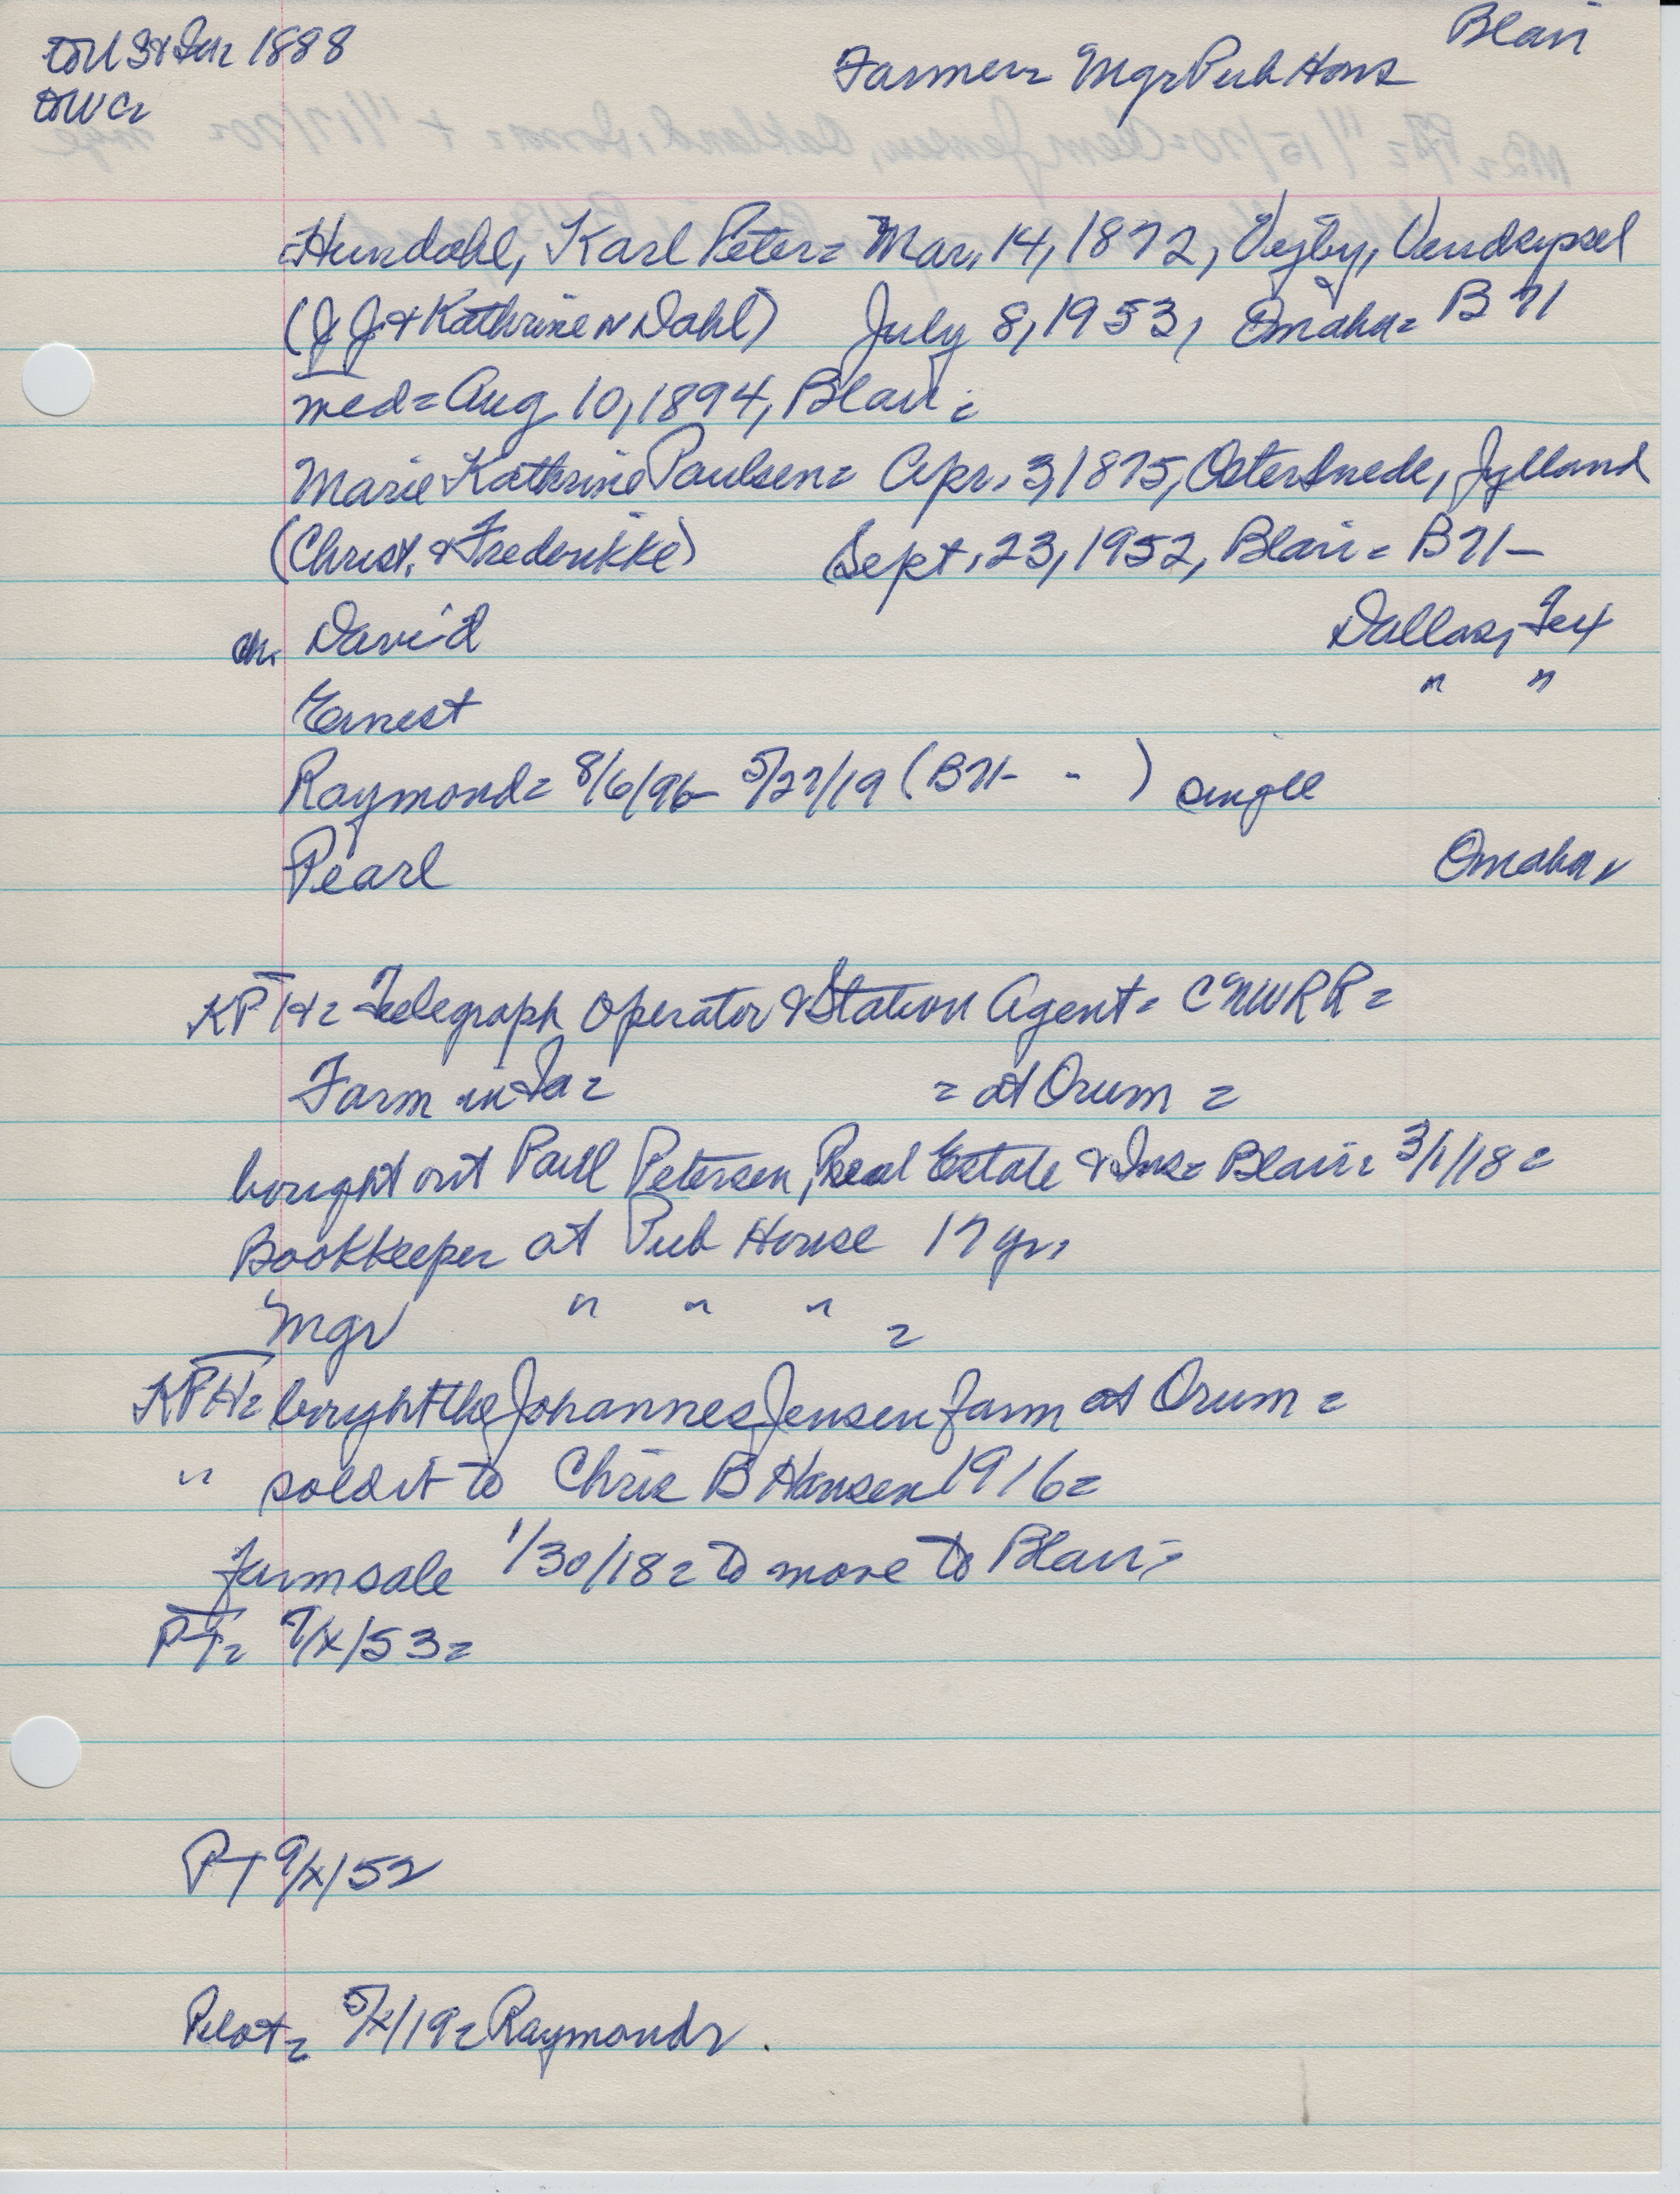 Blair
1888
Farmer= Mgr Pub Hous
DWC=
Hundahl, Karl Peter= Mar, 14, 1872, Vejby, Vendsyssel
(J J & Kathrine N Dahl) July 8, 1953, Omaha= B 71
med= Aug 10, 1894, Blair=
Marie Kathrine Paulsen= Apr. 3, 1875, Oster Snede, Jylland
(Christ. & Frederikke) Sept. 23, 1952, Blair= B71-
ch. David Dallas, Tex
Ernest " "
Raymond= 8/6/96- 5/27/19 (B71- - ) single
Pearl Omaha,
KPH= Telegraph Operator & Station Agent= CNWRR=
Farm in Ia= = at Orum =
bought out Paul Petersen, Real Estate & Ins= Blair= 3/1/18=
Bookkeeper at Pub House 17 yr,
Mgr " " " =
KPH= bought the Johannes Jensen farm at Orum =
" sold it to Chris B Hansen 1916=
farm sale 1/30/18= to move to Blair=
PT= 7/X/53=
PT 9/X/52
Pilot= 5/X/19= Raymond=.